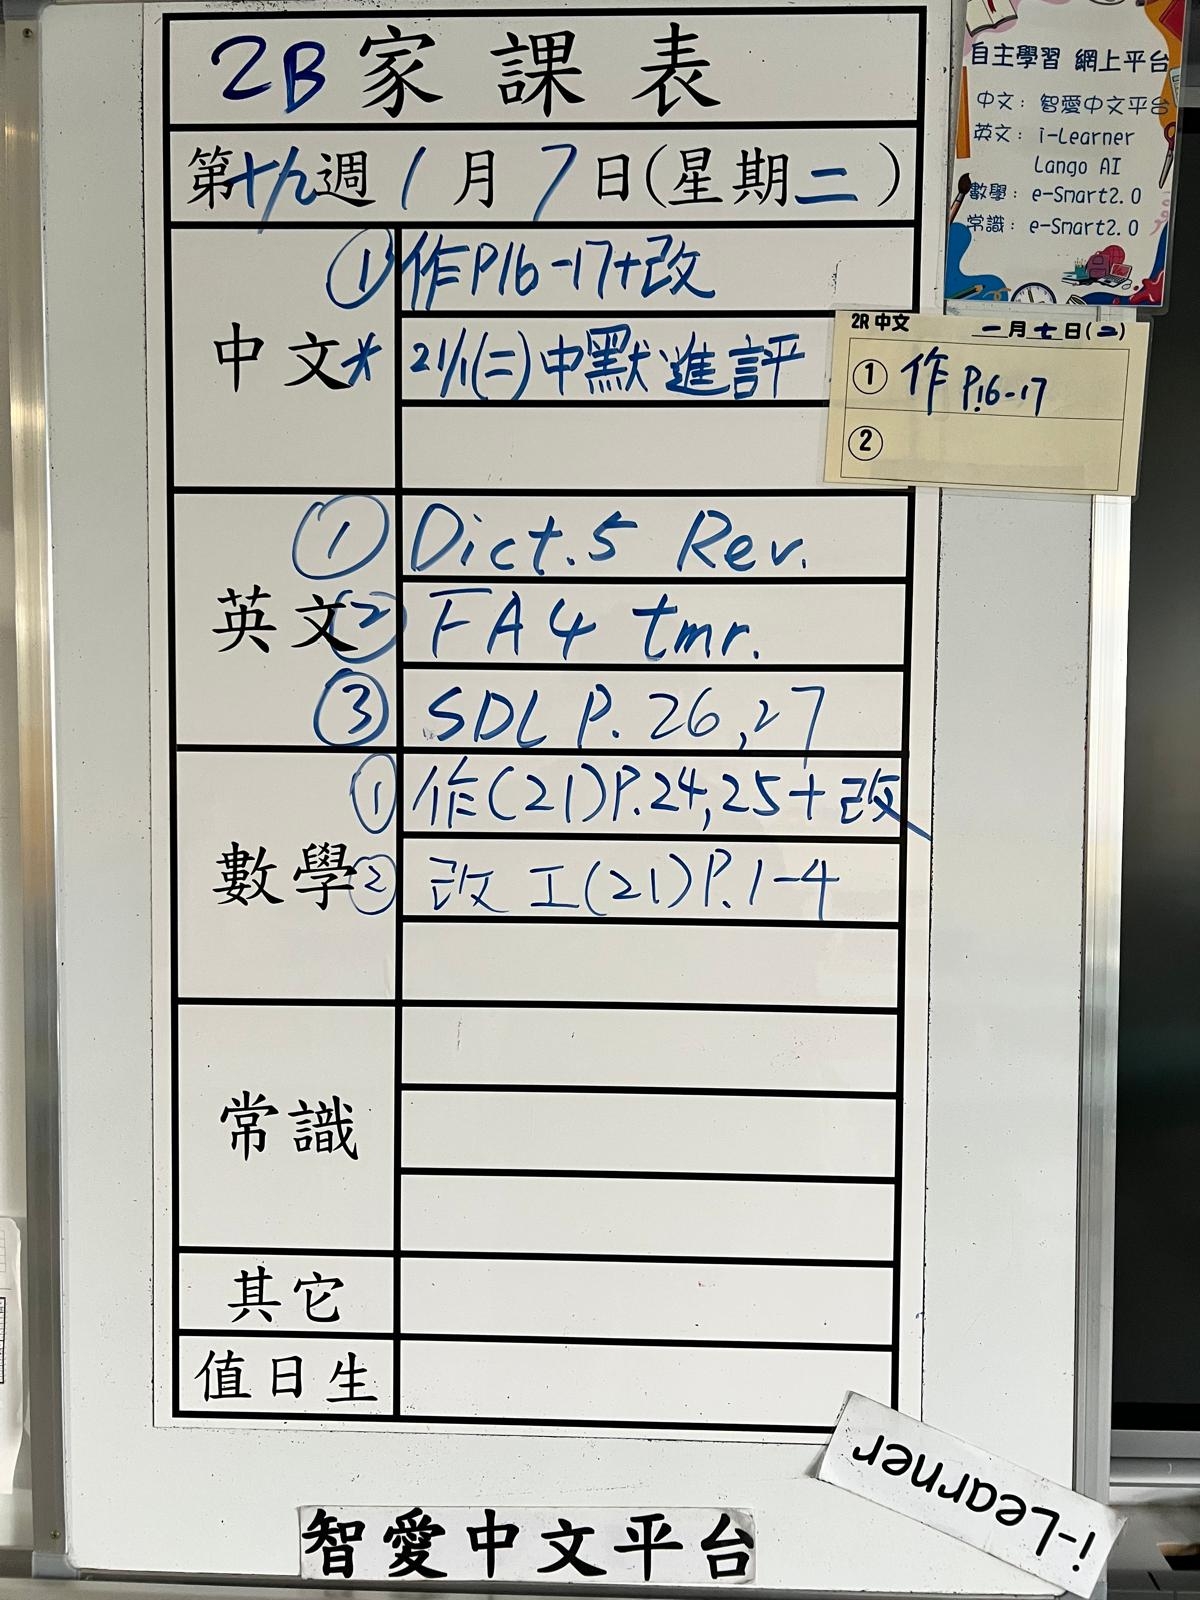 2B家課表
第十九週 1月7日(星期二)
中文
① 作P16-17+改
* 21/1(二)中默進評
英文
① Dict.5 Rev.
② FA4 tmr.
③ SDL P.26,27
數學
① 作(21)P.24,25+改
② 改工(21)P.1-4
常識
其它
值日生
自主學習 網上平台
中文: 智愛中文平台
英文: i-Learner
Lango AI
數學: e-Smart2.0
常識: e-Smart2.0
2R 中文 一月七日(二)
① 作 P.16-17
②
i-Learner
智愛中文平台